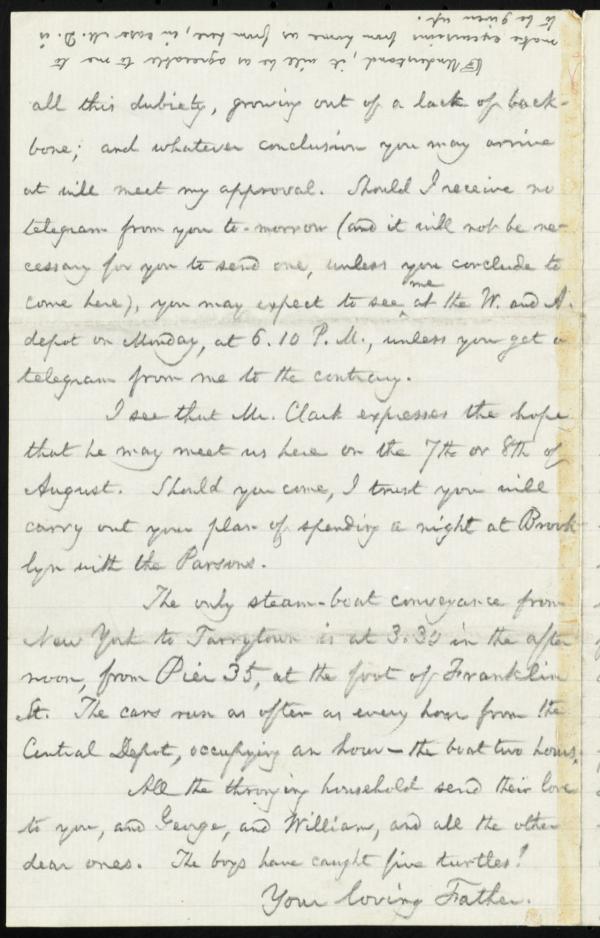 all this dubiety, growing out of a lack of back-
bone; and whatever conclusion you may arrive
at will meet my approval. Should I receive no
telegram from you to-morrow (and it will not be ne-
cessary for you to send one, unless you conclude to
come here), you may expect to see me at the W. and A.
depot on Monday, at 6.10 P. M., unless you get a
telegram from me to the contrary.
I see that Mr. Clark expresses the hope
that he may meet us here on the 7th or 8th of
August. Should you come, I trust you will
carry out your plan of spending a night at Brook-
lyn with the Parsons.
The only steam-boat conveyance from
New York to Tarrytown is at 3.30 in the after
noon, from Pier 35, at the foot of Franklin
St. The cars run as often as every hour from the
Central Depot, occupying an hour—the boat two hours.
All the thronging household send their love
to you, and George, and William, and all the other
dear ones. The boys have caught five turtles!
Your loving Father.
Understand, it will be as agreeable to me to
make excursions from home as from here, in case M. D. is
to be given up.